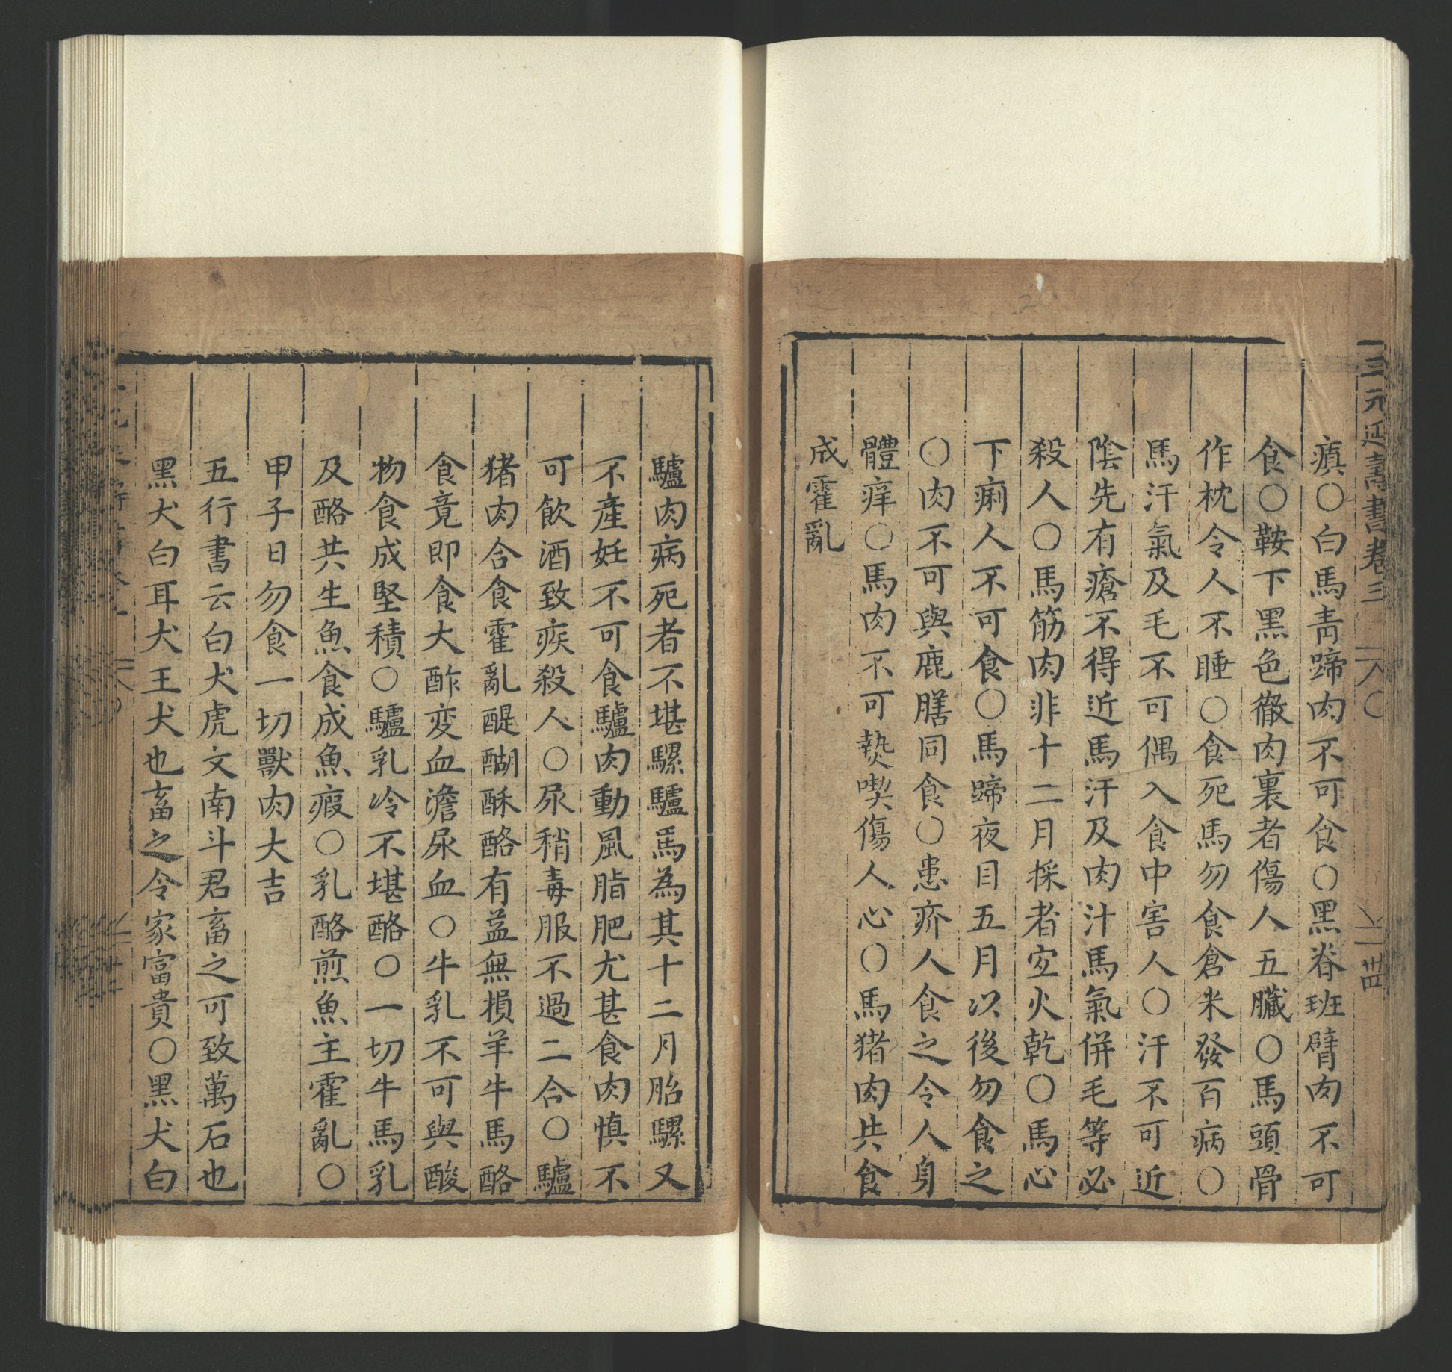 三元延壽書卷三
瘨○白馬青蹄肉不可食○黑脊班臂肉不可
食○鞍下黑色徹肉裏者傷人五臟○馬頭骨
作枕令人不睡○食死馬勿食倉米發百病○
馬汗氣及毛不可偶入食中害人○汗不可近
陰先有瘡不得近馬汗及肉汁馬氣併毛等必
殺人○馬筋肉非十二月採者宜火乾○馬心
下痢人不可食○馬蹄夜目五月以後勿食之
○肉不可與鹿膳同食○患疥人食之令人身
體痒○馬肉不可熱喫傷人心○馬猪肉共食
成霍亂
驢肉病死者不堪騾驢馬為其十二月胎騾又
不產妊不可食驢肉動風脂肥尤甚食肉慎不
可飲酒致疾殺人○尿稍毒服不過二合○驢
猪肉合食霍亂醍醐酥酪有益無損羊牛馬酪
食竟即食大酢变血澹尿血○牛乳不可與酸
物食成堅積○驢乳冷不堪酪○一切牛馬乳
及酪共生魚食成魚瘕○乳酪煎魚主霍亂○
甲子日勿食一切獸肉大吉
五行書云白犬虎文南斗君畜之可致萬石也
黑犬白耳犬王犬也畜之令家富貴○黑犬白